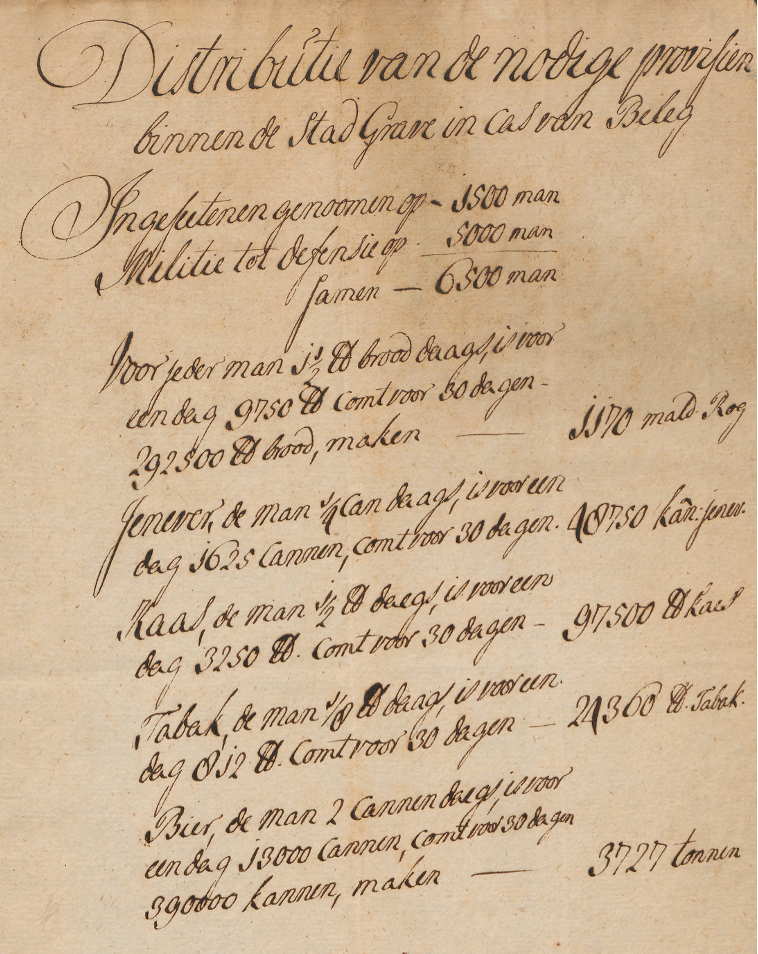 Distributie van de nodige provisien
binnen de Stad Grave in cas van Beleg
Ingesetenen genoomen op - 1500 man
Militie tot defensie op 5000 man
samen — 6500 man
Voor jeder man 1 1/2 ℔ brood daags, is voor
een dag 9750 ℔ Comt voor 30 dagen -
292500 ℔ brood, maken — 1170 mald. Rog
Jenever, de man 1/4 Can daags, is voor een
dag 1625 Cannen, comt voor 30 dagen. 48750 kan. jenev.
Kaas, de man 1/2 ℔ daegs, is voor een
dag 3250 ℔. Comt voor 30 dagen - 97500 ℔ kaes
Tabak, de man 1/8 ℔ daags, is voor een.
dag 812 ℔. Comt voor 30 dagen — 24360 ℔. Tabak.
Bier, de man 2 Cannen daegs, is voor
een dag 13000 Cannen, comt voor 30 dagen
390000 kannen, maken — 3727 tonnen